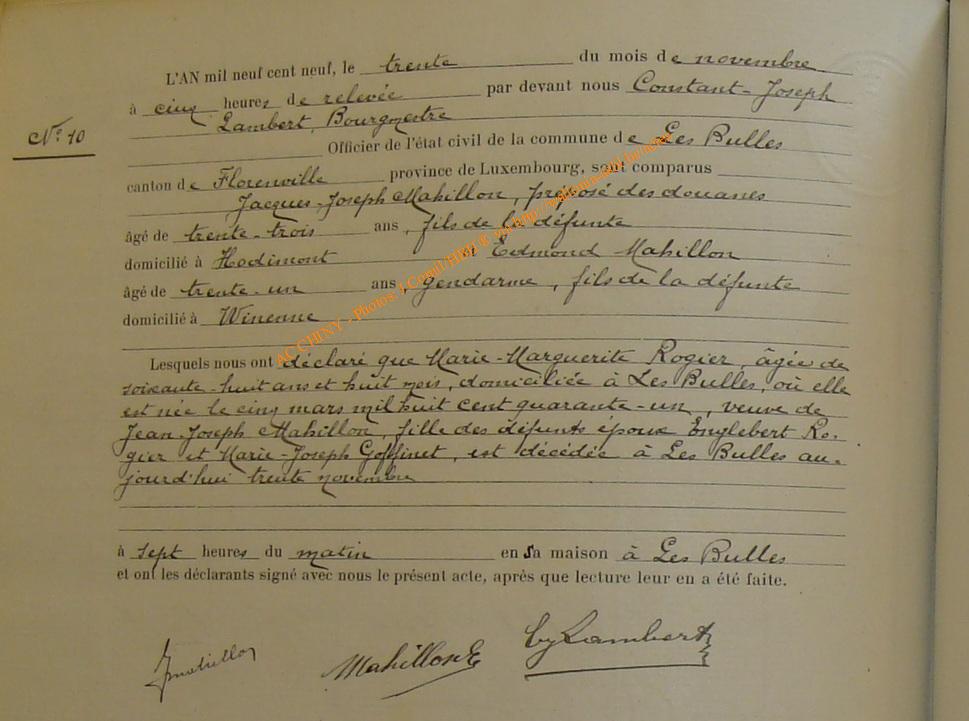 L'AN mil neuf cent neuf, le trente du mois de novembre
à cinq heures de relevée par devant nous Constant-Joseph
Lambert, Bourgmestre
N° 10
Officier de l'état civil de la commune de Les Bulles
canton de Florenville province de Luxembourg, sont comparus
Jacques-Joseph Mahillon, préposé des douanes
âgé de trente-trois ans, fils de la défunte
domicilié à Hodimont et Edmond Mahillon
âgé de trente-un ans, gendarme, fils de la défunte
domicilié à Winenne
ACCHINY - Photos: J.Comil/HDH &
Lesquels nous ont déclaré que Marie-Marguerite Rogier, âgée de
soixante-huit ans et huit mois, domiciliée à Les Bulles, où elle
est née le cinq mars mil huit cent quarante-un, veuve de
Jean-Joseph Mahillon, fille des défunts époux Englebert Ro-
gier et Marie-Joseph Goffinet, est décédée à Les Bulles au-
jourd'hui trente novembre
à sept heures du matin en sa maison à Les Bulles
et ont les déclarants signé avec nous le présent acte, après que lecture leur en a été faite.
JMahillon MahillonE CJLambert